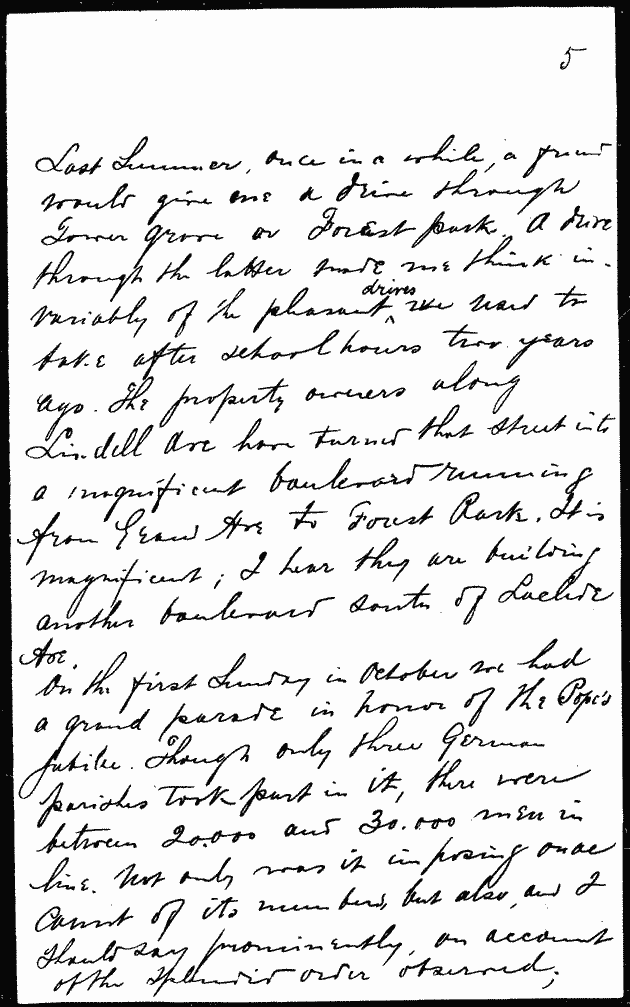 5
Last Summer, once in a while, a friend
would give me a drive through
Tower grove or Forest park. A drive
through the latter made me think in-
variably of the pleasant drives we used to
take after school hours two years
ago. The property owners along
Lindell Ave have turned that street into
a magnificent boulevard running
from Grand Ave to Forest Park. It is
magnificent; I hear they are building
another boulevard south of Laclede
Ave.
On the first Sunday in October we had
a grand parade in honor of the Pope's
jubilee. Though only three German
parishes took part in it, there were
between 20.000 and 30.000 men in
line. Not only was it imposing on ac
count of its numbers, but also, and I
should say prominently, on account
of the splendid order observed;